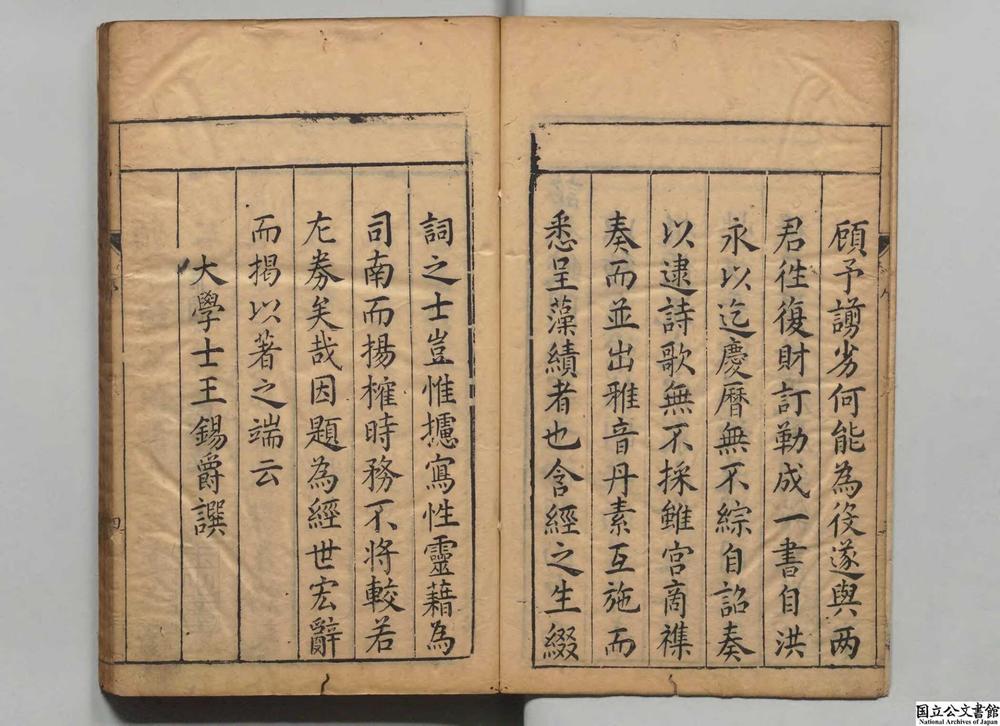 顧予謭劣何能為役遂與两
君徃復財訂勒成一書自洪
永以迄慶曆無不綜自詔奏
以逮詩歌無不採雖宮商襍
奏而並出雅音丹素互施而
悉呈藻繢者也含經之生綴
詞之士豈惟攄寫性靈藉為
司南而揚榷時務不將較若
左券矣哉因題為經世宏辭
而揭以著之端云
大學士王錫爵譔
国立公文書館
National Archives of Japan